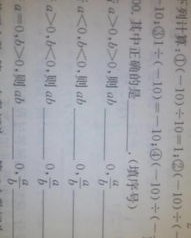 列计算:①(-10)÷10=1;②(-10)÷(-
-10;③1÷(-10)=-10;④(-10)÷(-
00.其中正确的是______.(填序号)
a>0,b>0,则ab______0,a/b
a<0,b<0,则ab______0,a/b
a>0,b<0,则ab______0,a/b
a=0,b>0,则ab______0,a/b